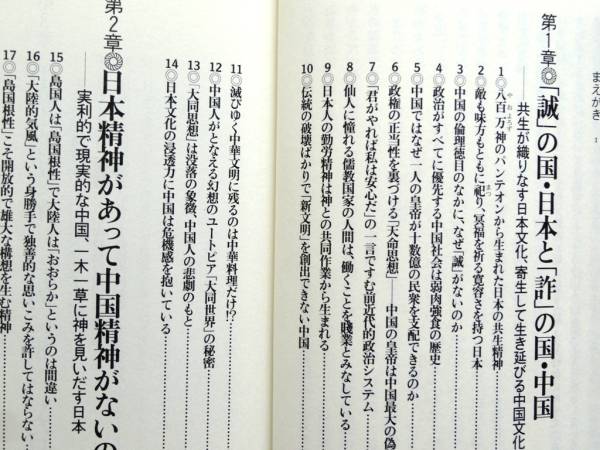 まえがき 1
第1章◎「誠」の国・日本と「詐」の国・中国
──共生が織りなす日本文化、寄生して生き延びる中国文化
1◎八百万神のパンテオンから生まれた日本の共生精神
やおよろず
2◎敵も味方もともに祀り、冥福を祈る寛容さを持つ日本
まつ
3◎中国の倫理徳目のなかに、なぜ「誠」がないのか
4◎政治がすべてに優先する中国社会は弱肉強食の歴史
5◎中国ではなぜ一人の皇帝が十数億の民衆を支配できるのか
6◎政権の正当性を裏づける「天命思想」──中国の皇帝は中国最大の偽
7◎「君がやれば私は安心だ」の一言ですむ前近代的政治システム
8◎仙人に憧れる儒教国家の人間は、働くことを賤業とみなしている
9◎日本人の勤労精神は神との共同作業から生まれる
10◎伝統の破壊ばかりで「新文明」を創出できない中国
11◎滅びゆく中華文明に残るのは中華料理だけ!?
12◎中国人がとなえる幻想のユートピア「大同世界」の秘密
13◎「大同思想」は没落の象徴、中国人の悲劇のもと
14◎日本文化の浸透力に中国は危機感を抱いている
第2章◎日本精神があって中国精神がないの
──実利的で現実的な中国、一木一草に神を見いだす日本
15◎島国人は「島国根性」で大陸人は「おおらか」というのは間違い
16◎「大陸的気風」という身勝手で独善的な思いこみを許してはならない
17◎「島国根性」こそ開放的で雄大な構想を生む精神